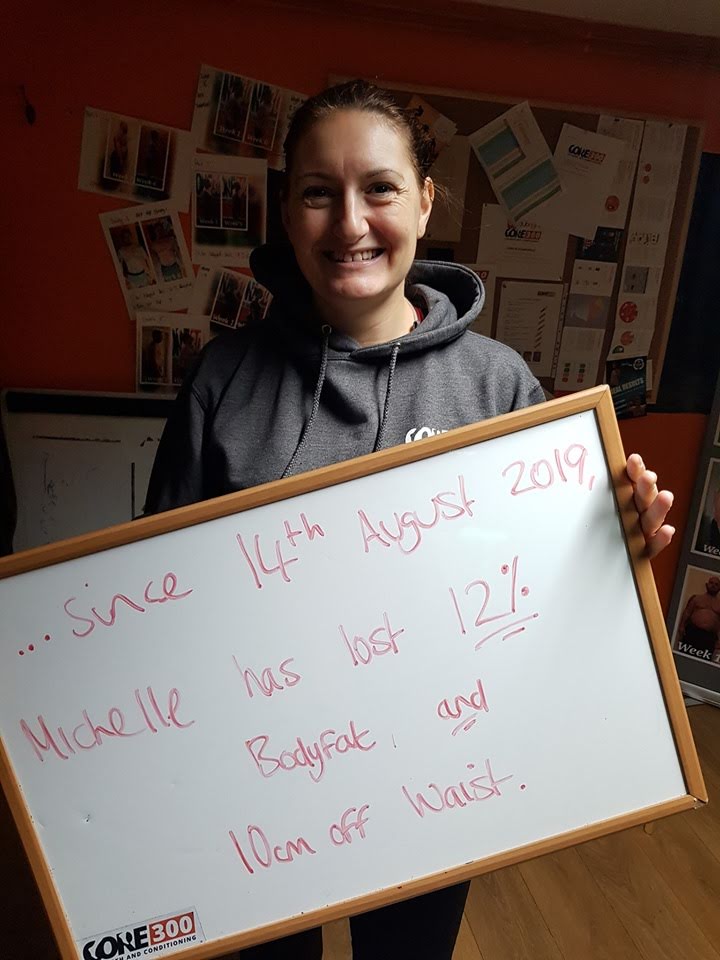 CORE300
CORE300
CORE
... Since 14th August 2019,
Michelle has lost 12%
Bodyfat, and
10cm off Waist.
CORE300
AND CONDITIONING
Week 1